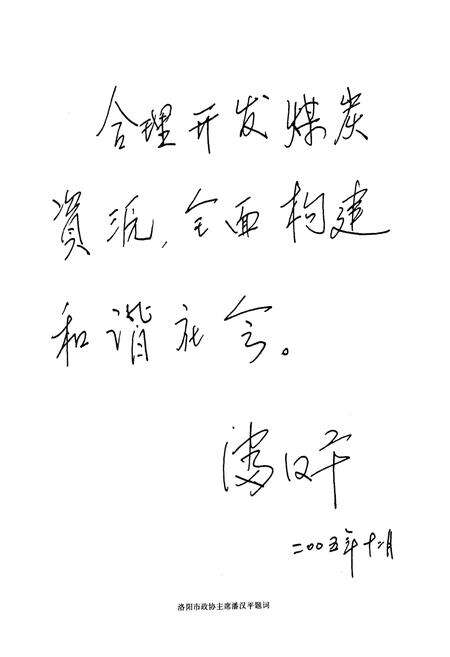 合理开发煤炭
资源,全面构建
和谐社会。
潘汉平
二00五年十二月
洛阳市政协主席潘汉平题词